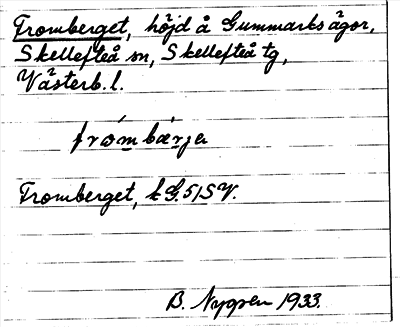 Fromberget, höjd å Gummarks ägor,
Skellefteå sn, Skellefteå tg,
Västerb. l.
frómbærja
Fromberget, k G.51SV.
B. Nygren 1933.